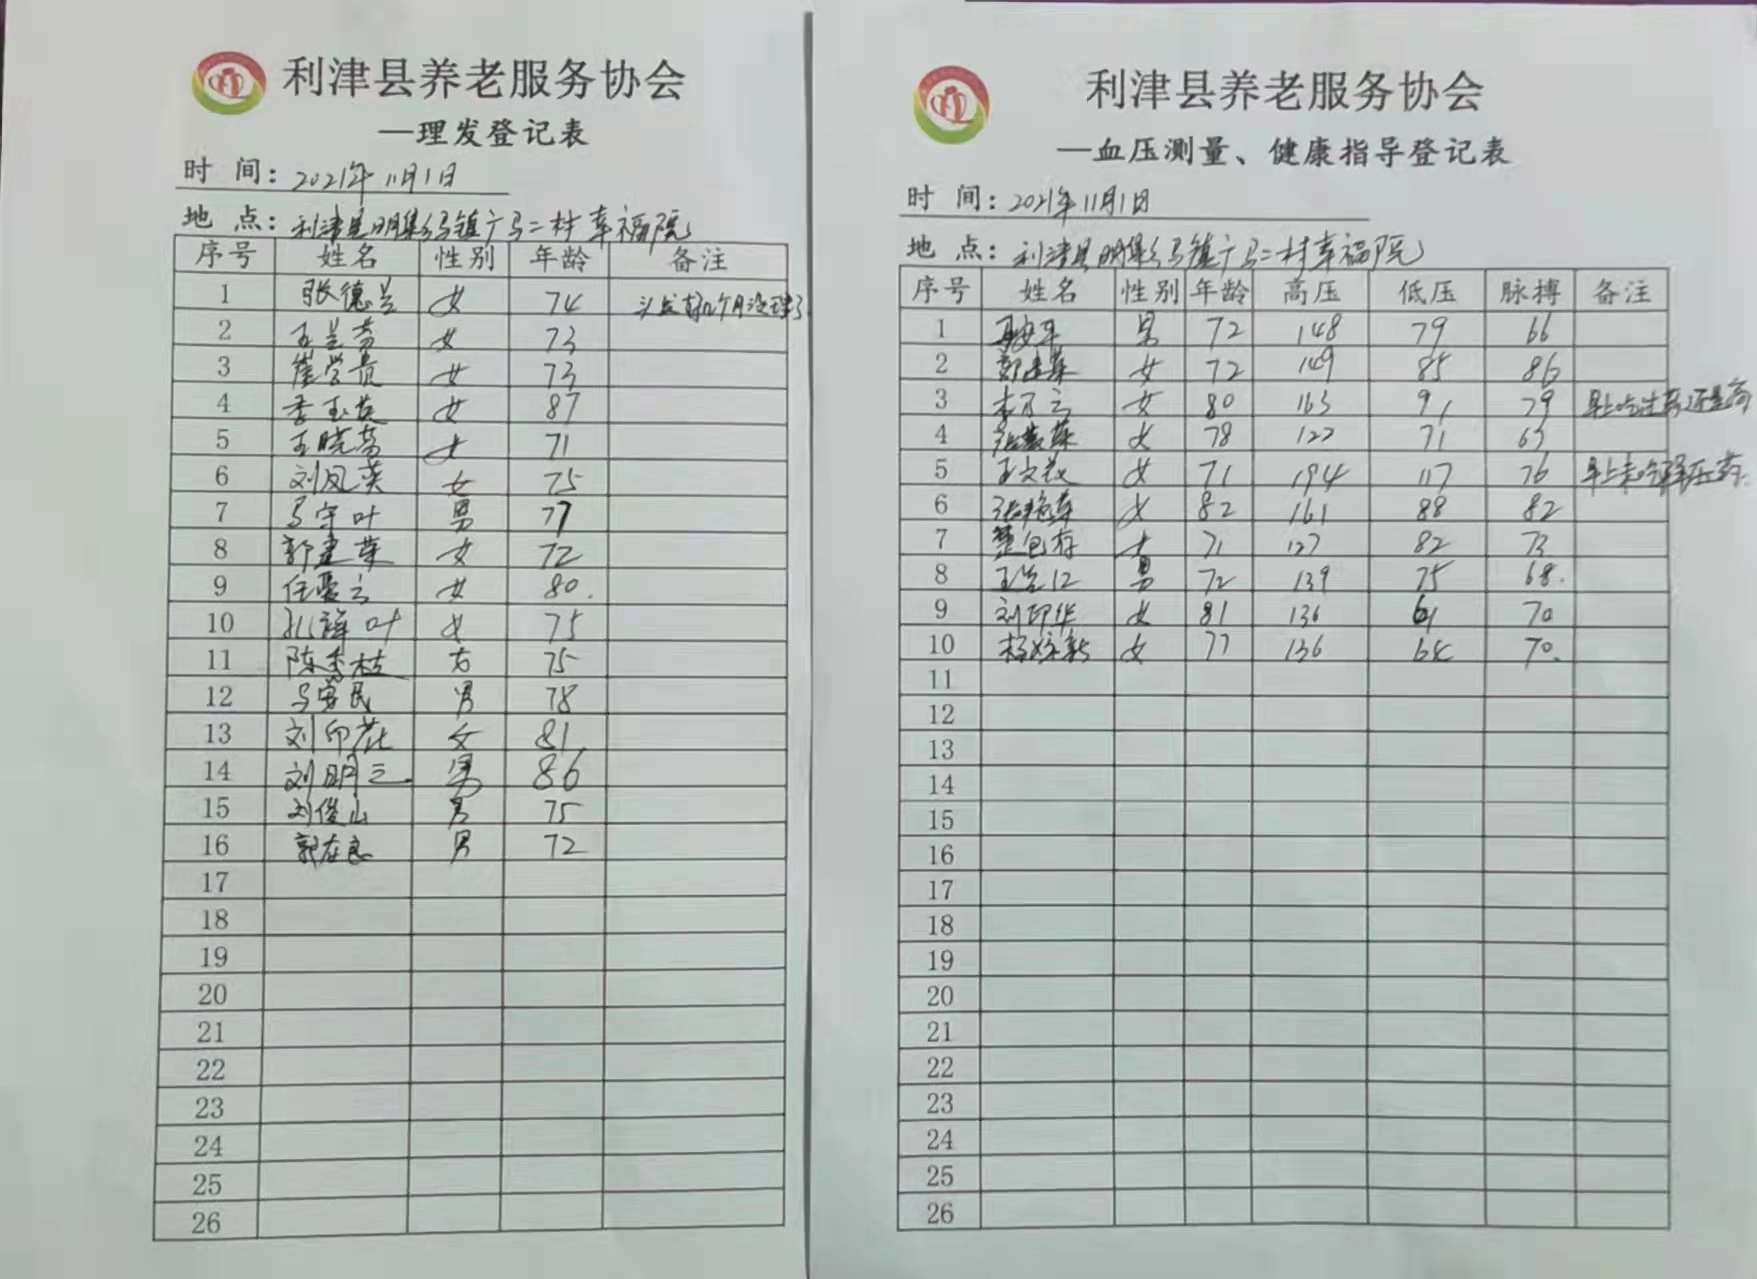 利津县养老服务协会
—理发登记表
时 间: 2021年11月1日
地 点: 利津县明集乡马镇广马二村幸福院
序号 姓名 性别 年龄 备注
1 张德兰 女 74 头发好几个月没理了
2 王兰芬 女 73
3 崔学贵 女 73
4 李玉英 女 87
5 王晓芬 女 71
6 刘凤英 女 75
7 马守叶 男 77
8 郭建荣 女 72
9 任爱云 女 80.
10 叶 女 75
11 陈秀枝 女 75
12 马 民 男 78
13 刘印花 女 81
14 刘明三 男 86
15 刘俊山 男 75
16 郭在良 男 72
17
18
19
20
21
22
23
24
25
26
利津县养老服务协会
—血压测量、健康指导登记表
时 间: 2021年11月1日
地 点: 利津县明集乡马镇广马二村幸福院
序号 姓名 性别 年龄 高压 低压 脉搏 备注
1 男 72 148 79 66
2 郭建荣 女 72 149 85 86
3 云 女 80 163 91 79 早上吃过药还是高
4 女 78 122 71 63
5 王文 女 71 194 117 76 早上未吃降压药.
6 女 82 161 88 82
7 女 71 127 82 73
8 男 72 139 75 68.
9 刘印华 女 81 136 61 70
10 女 77 136 64 70.
11
12
13
14
15
16
17
18
19
20
21
22
23
24
25
26